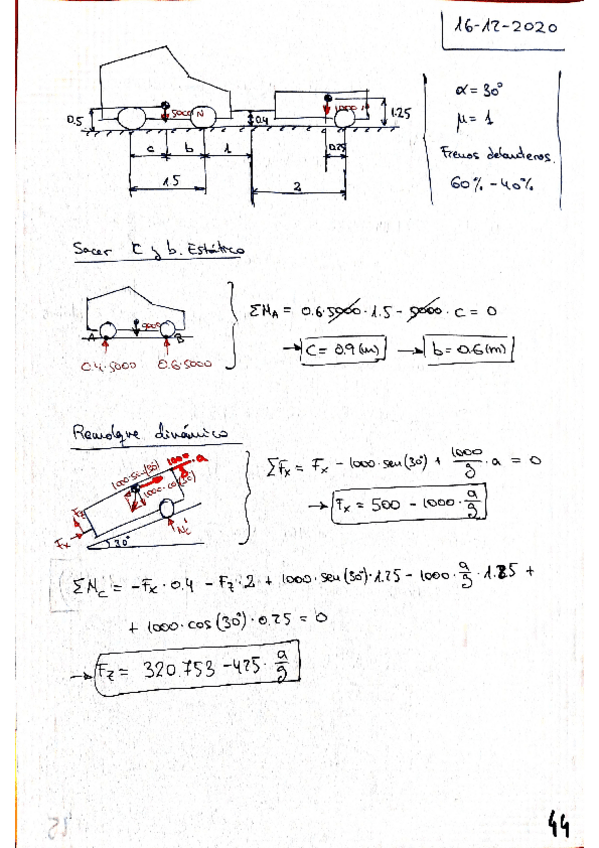 16-12-2020
0.5
5000 N
1000 N
0.4
1.25
c
b
1
0.25
1.5
2
α = 30°
μ = 1
Frenos delanteros.
60% - 40%
Sacar c y b. Estático
A
B
0.4·5000
0.6·5000
ΣM_A = 0.6·5000·1.5 - 5000·c = 0
→ c = 0.9 (m) → b = 0.6 (m)
Remolque dinámico
1000·sin(30°)
1000·a
1000·cos(30°)
Fz
Fx
30°
ΣFx = Fx - 1000·sen(30°) + 1000/g · a = 0
→ Fx = 500 - 1000· a/g
ΣM_C = -Fx·0.4 - Fz·2 + 1000·sen(30°)·1.25 - 1000· a/g ·1.25 +
+ 1000·cos(30°)·0.25 = 0
→ Fz = 320.753 - 425· a/g
44